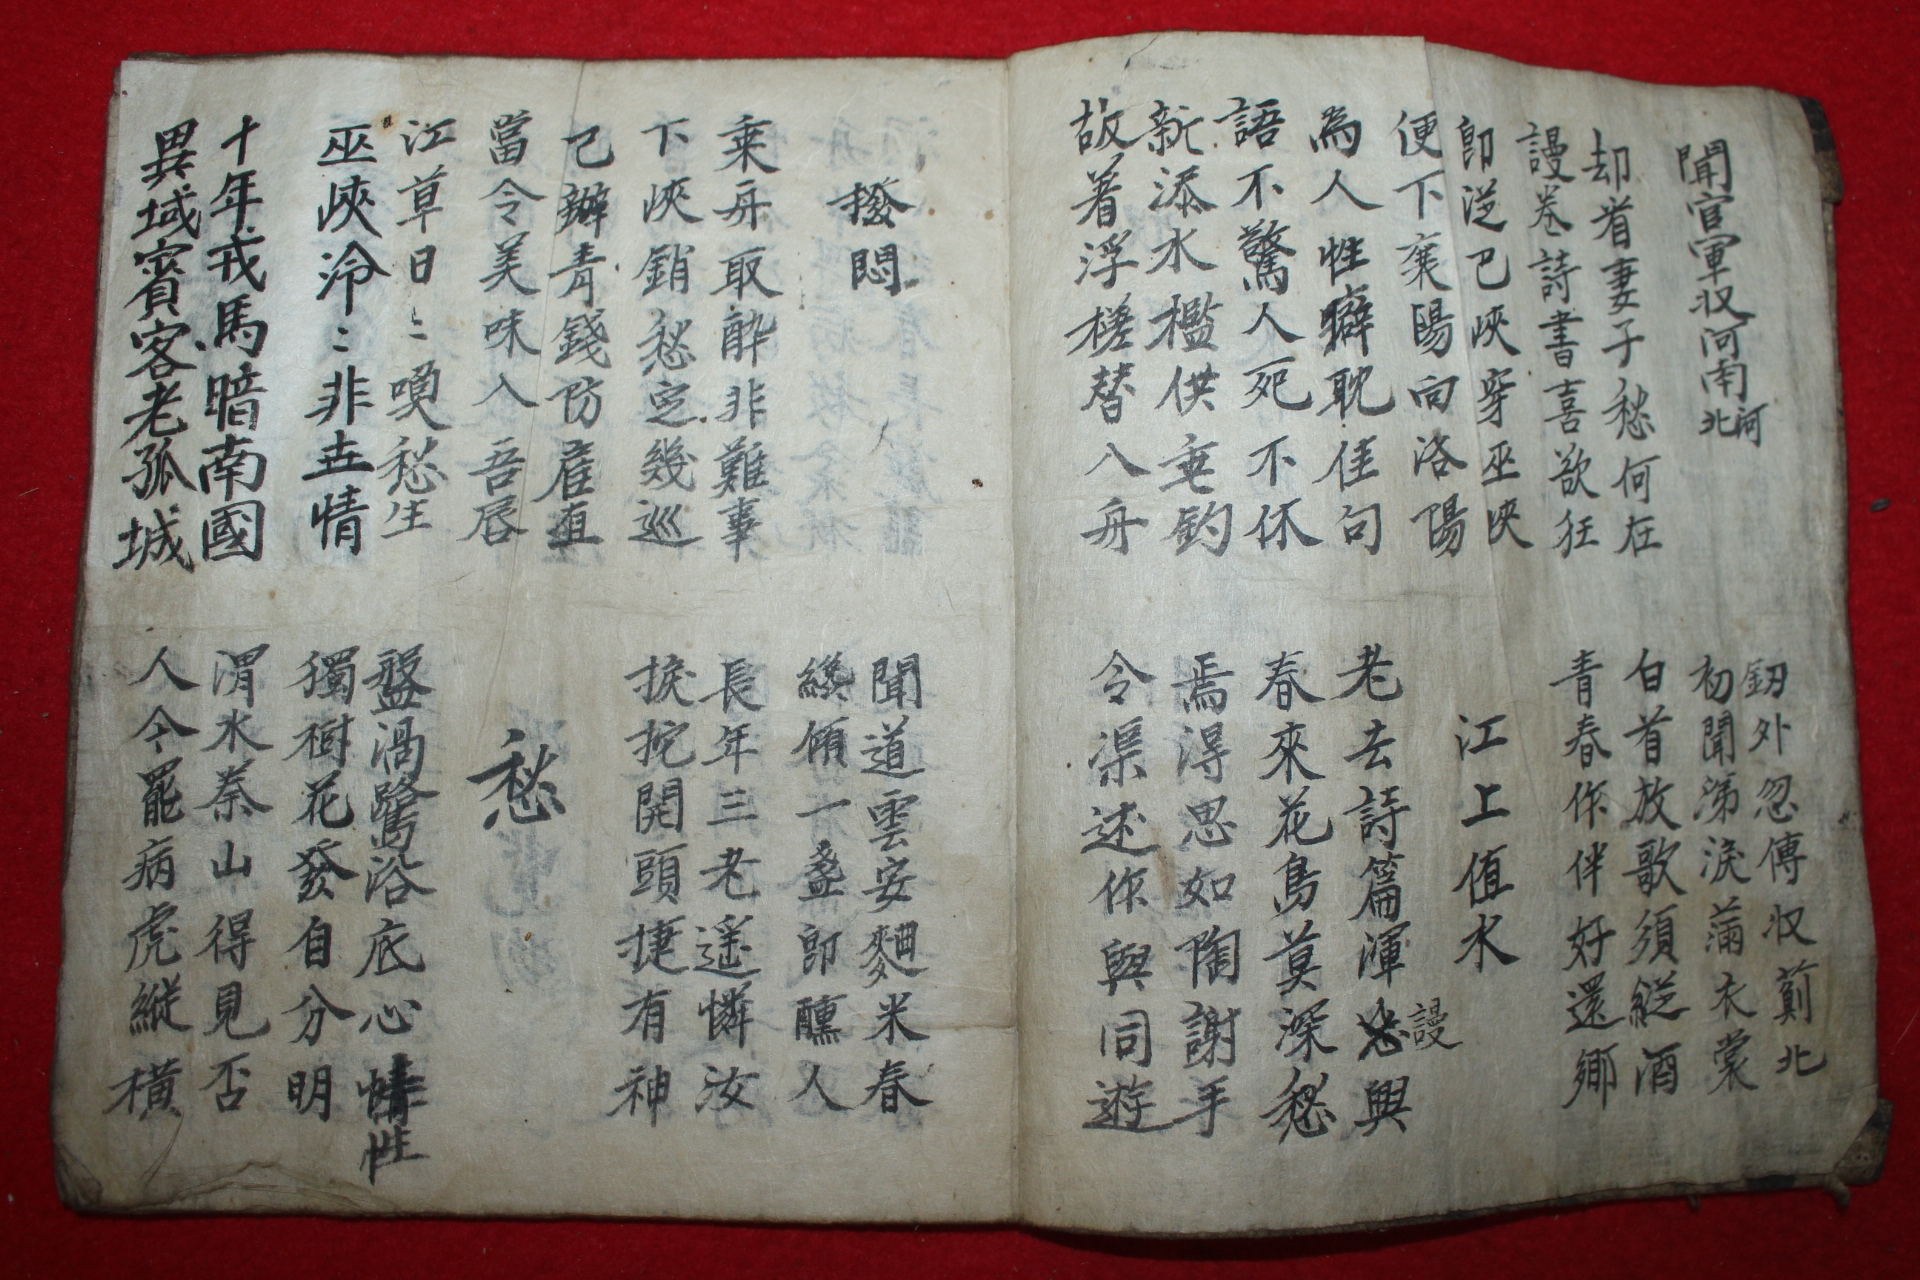 聞官軍収河南河北
釼外忽傳収薊北
初聞涕淚滿衣裳
却看妻子愁何在
謾卷詩書喜欲狂
白首放歌須縱酒
青春作伴好還鄉
卽從巴峽穿巫峽
便下襄陽向洛陽
江上值水
為人性癖耽佳句
語不驚人死不休
老去詩篇渾謾興
春來花鳥莫深愁
新添水檻供垂釣
故着浮槎替入舟
焉得思如陶謝手
令渠述作與同遊
撥悶
聞道雲安麯米春
纔傾一盞卽醺人
乘舟取醉非難事
下峽銷愁定幾巡
長年三老遙憐汝
捩柁開頭捷有神
已辦青錢防雇直
當令美味入吾唇
愁
江草日〻喚愁生
巫峽泠〻非世情
盤渦鷺浴底心性
獨樹花發自分明
十年戎馬暗南國
異域賓客老孤城
渭水秦山得見否
人今罷病虎縱橫